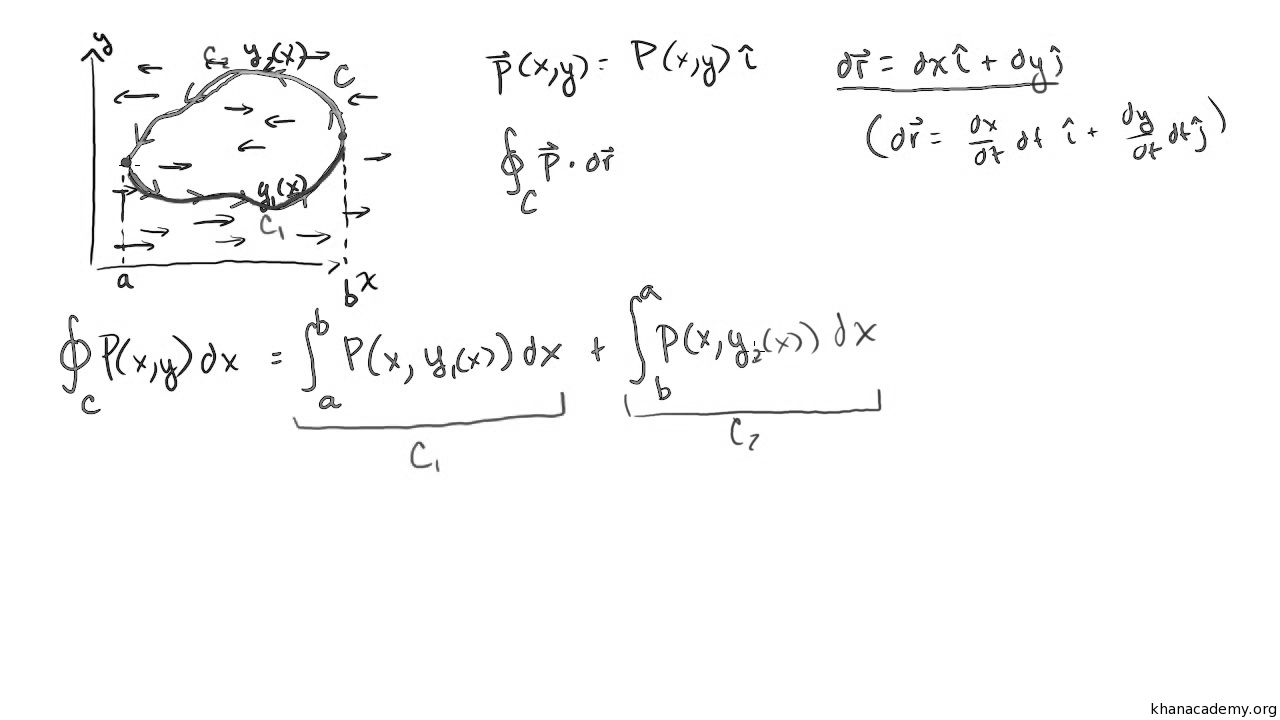 y
C₂ y₂(x)
C
y₁(x)
C₁
a
b x
P⃗(x,y) = P(x,y) î
∮_C P⃗ · dr⃗
dr⃗ = dx î + dy ĵ
(dr⃗ = dx/dt dt î + dy/dt dt ĵ)
∮_C P(x,y) dx = ∫_a^b P(x, y₁(x)) dx + ∫_b^a P(x, y₂(x)) dx
C₁ C₂
khanacademy.org